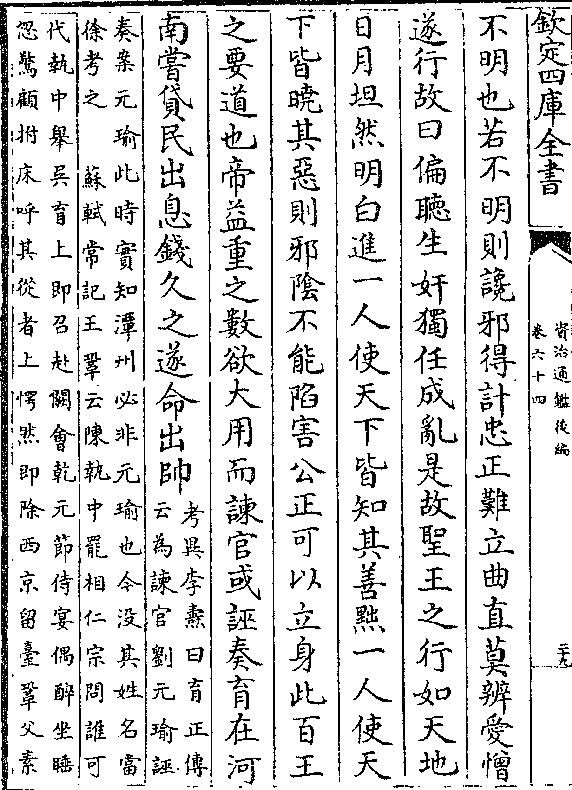 欽定四庫全書
資治通鑑後編
卷六十四
二十九
不明也若不明則讒邪得計忠正難立曲直莫辨愛憎
遂行故曰偏聽生奸獨任成亂是故聖王之行如天地
日月坦然明白進一人使天下皆知其善黜一人使天
下皆曉其惡則邪陰不能陷害公正可以立身此百王
之要道也帝益重之數欲大用而諫官或誣奏育在河
南嘗貸民出息錢久之遂命出帥
考異李燾曰育正傳
云為諫官劉元瑜誣
奏案元瑜此時實知潭州必非元瑜也今没其姓名當
徐考之 蘇軾常記王鞏云陳執中罷相仁宗問誰可
代執中舉吳育上即召赴闕會乾元節侍宴偶醉坐睡
忽驚顧拊床呼其從者上愕然即除西京留臺鞏父素